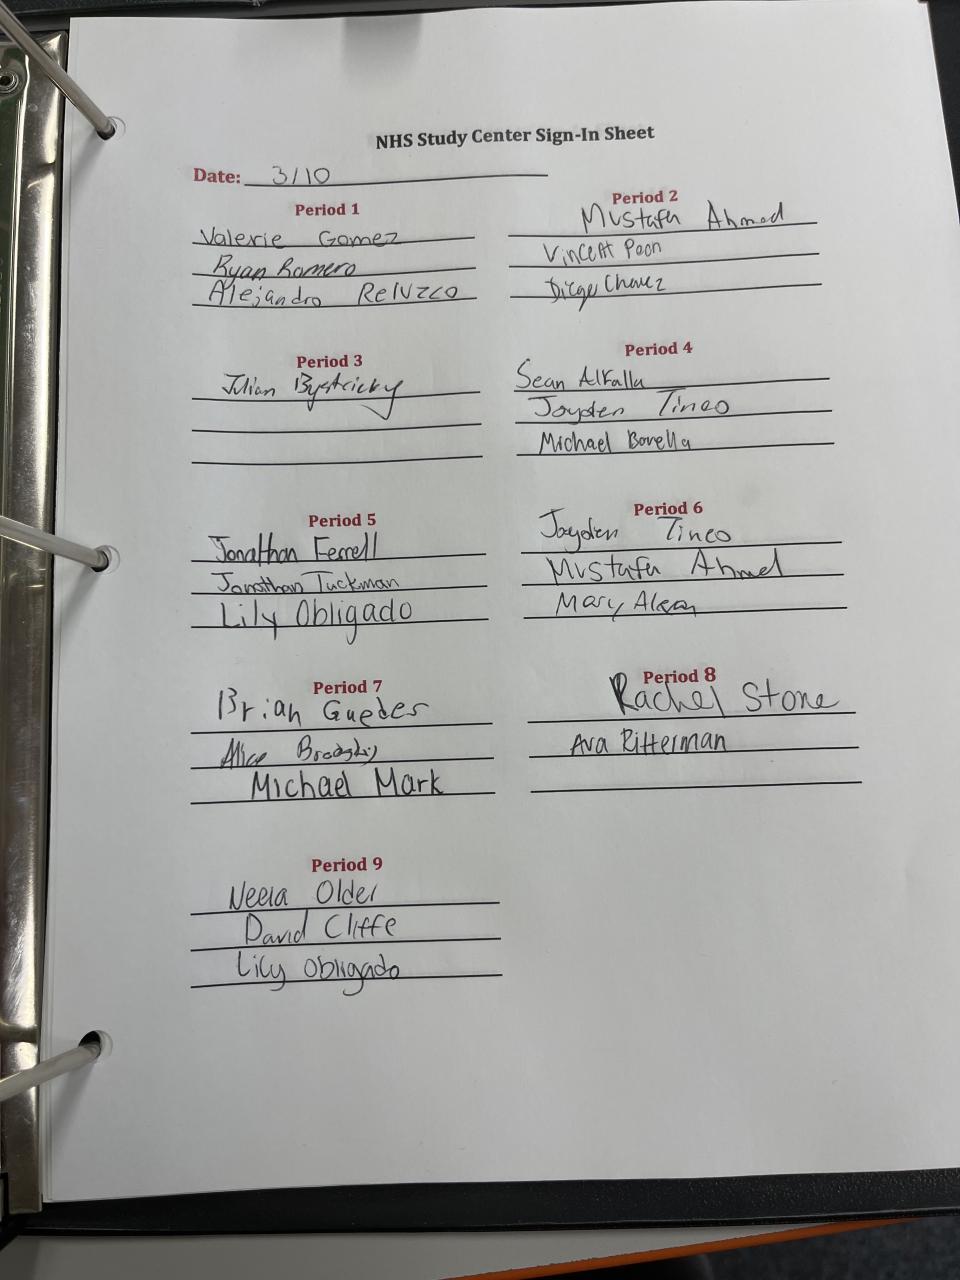 NHS Study Center Sign-In Sheet
Date: 3/10
Period 1
Valerie Gomez
Ryan Romero
Alejandro Reluzco
Period 2
Mustafa Ahmed
Vincent Poon
Diego Chavez
Period 3
Julian Bystricky
Period 4
Sean Alkalla
Jayden Tineo
Michael Bovella
Period 5
Jonathan Ferrell
Jonathan Tuckman
Lily Obligado
Period 6
Jayden Tineo
Mustafa Ahmed
Mary
Period 7
Brian Guedes
Alice
Michael Mark
Period 8
Rachel Stone
Ava Ritterman
Period 9
Neela Older
David Cliffe
Lily Obligado